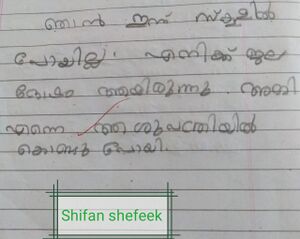 ഞാൻ ഇന്ന് സ്കൂളിൽ
പോയില്ല. എനിക്ക് ജല
ദോഷം ആയിരുന്നു. അമ്മ
എന്നെ ആശുപത്രിയിൽ
കൊണ്ടുപോയി.
Shifan shefeek